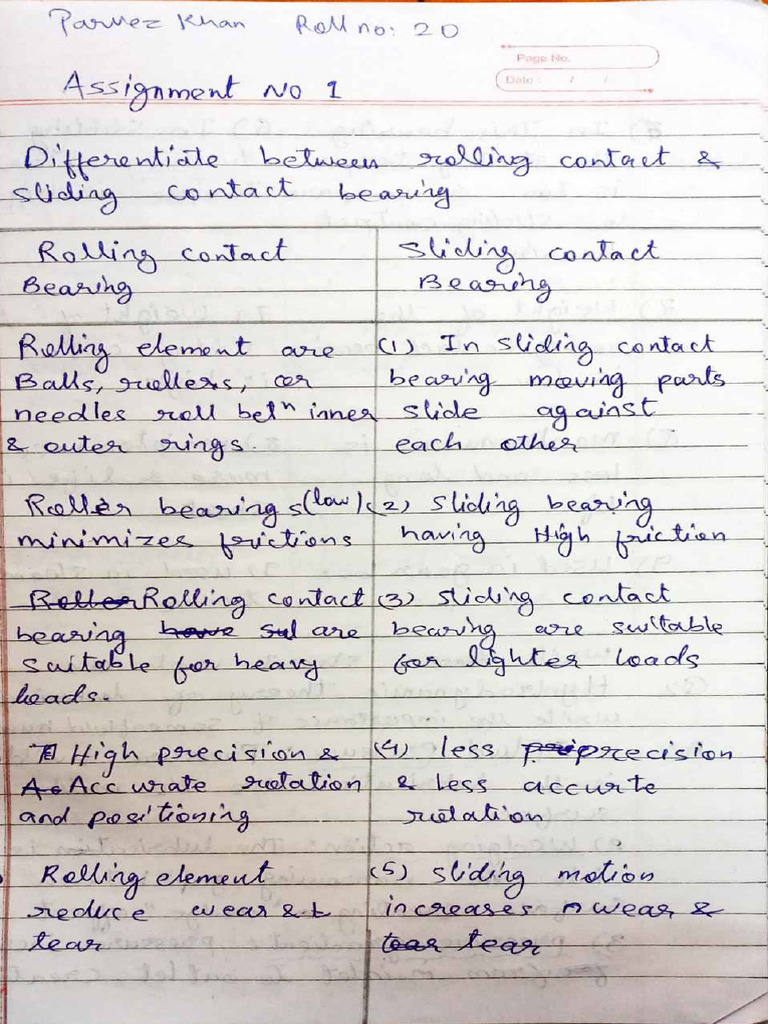 Parvez Khan Roll no: 20
Page No.
Date : / /
Assignment No 1
Differentiate between rolling contact &
sliding contact bearing
Rolling contact
Bearing
Sliding contact
Bearing
Rolling element are
Balls, rollers, or
needles roll betn inner
& outer rings.
(1) In sliding contact
bearing moving parts
slide against
each other
Roller bearings (low)
minimizes frictions
(2) Sliding bearing
having High friction
Roller Rolling contact
bearing have are
suitable for heavy
loads.
(3) Sliding contact
bearing are suitable
for lighter loads
High precision &
Accurate rotation
and positioning
(4) less precision
& less accurte
rotation
Rolling element
reduce wear & t
tear
(5) sliding motion
increases wear &
tear tear